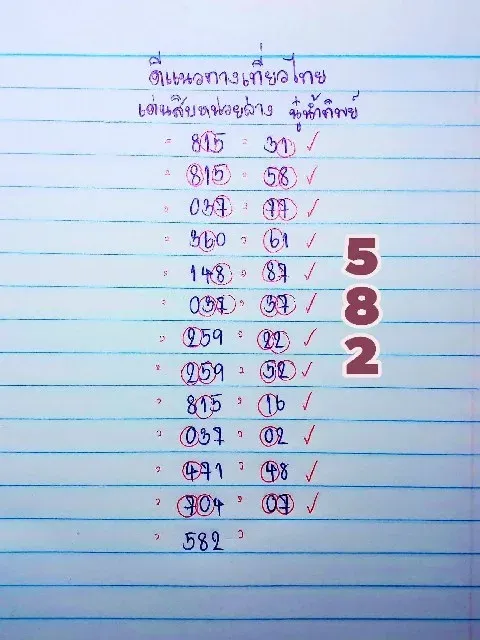 ดีแนวทางเที่ยวไทย
เด่นสิบหน่วยล่าง นู๋น้ำทิพย์
" 815 " 31 ✓
" 815 " 58 ✓
" 037 " 77 ✓
" 360 " 61 ✓
" 148 " 87 ✓
" 037 " 37 ✓
" 259 " 22 ✓
" 259 " 52 ✓
" 815 " 16 ✓
" 037 " 02 ✓
" 471 " 48 ✓
" 704 " 07 ✓
" 582 "
5
8
2